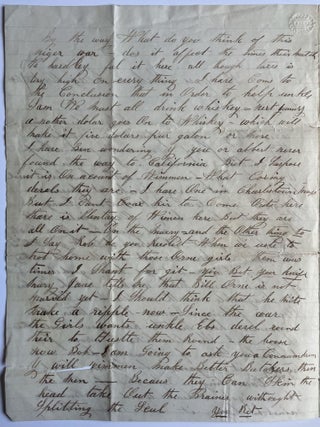 by the way What do you think of this
niger war does it afect the times there much
to hardly fel it here all hough taxes is
try high on every thing I have Come to
the Conclusion that in Order to help unkle
Sam We Must all drink whiskey Next January
a nother dolar goes On to Whiskey which will
make it five dolars pur galon or more
I have ben wondering if you or abbot never
found the way to California But I supose
it is On account of Wimmen What Coring
devels they are I have One in Charlestown
But I Cant Coax hir to Come Out here
thare is Plentey of Wimen here But they are
all On it On the Marry and the Other thing to
I Say Rob do you recolect When we uste to
root home with those Orne girls them was
times I Shant for git You Bet your
Mary Jane tells me that Bill Orne is not
married yet I Should think that he mits
make a ripple now Since the war
the Girls wants unkle Ebs devel round
hir to Bustle them round the house
now Bob I am Going to ask you a Conundrum
Why will wimmen Make Better Butchers, than
the Men Becaus they Can Skin the
head take Out the Braines without
Splitting the Scul You Bet